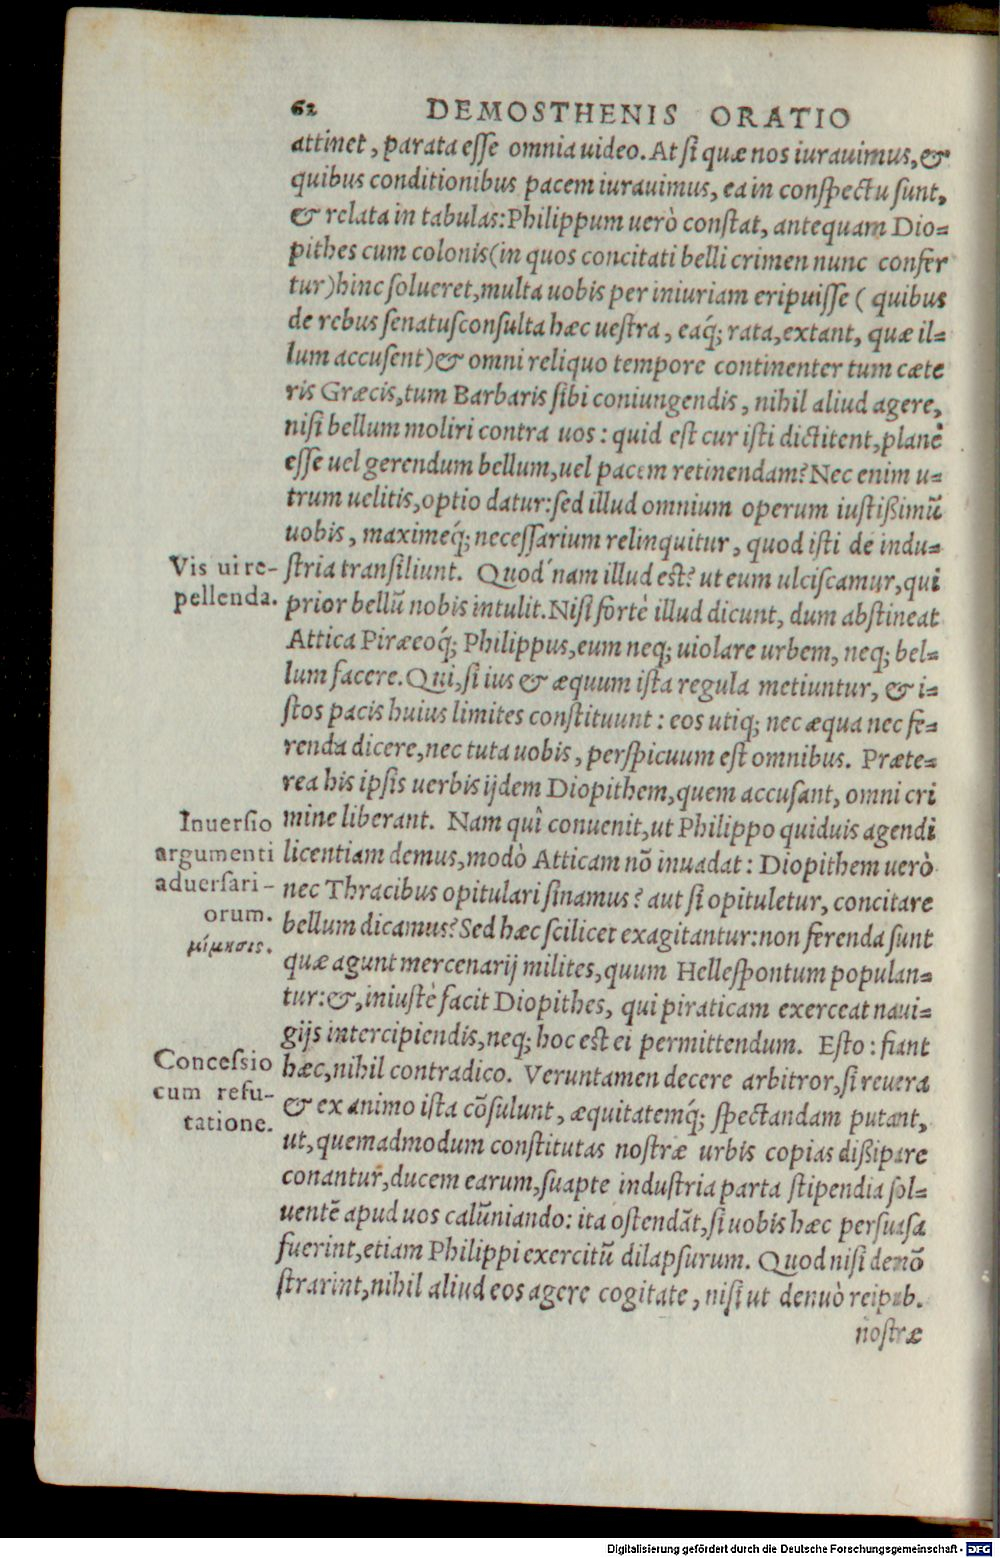 62 DEMOSTHENIS ORATIO
attinet, parata eſſe omnia uideo. At ſi quæ nos iurauimus, &
quibus conditionibus pacem iurauimus, ea in conſpectu ſunt,
& relata in tabulas: Philippum uerò conſtat, antequam Dio=
pithes cum colonis (in quos concitati belli crimen nunc confer
tur) hinc ſolueret, multa uobis per iniuriam eripuiſſe ( quibus
de rebus ſenatuſconſulta hæc ueſtra, eaq́; rata, extant, quæ il=
lum accuſent) & omni reliquo tempore continenter tum cæte
ris Græcis, tum Barbaris ſibi coniungendis, nihil aliud agere,
niſi bellum moliri contra uos: quid eſt cur iſti dictitent, planè
eſſe uel gerendum bellum, uel pacem retinendam? Nec enim u=
trum uelitis, optio datur: ſed illud omnium operum iuſtißimū
uobis, maximeq́; neceſſarium relinquitur, quod iſti de indu=
Vis ui re-
pellenda.
ſtria tranſiliunt. Quod'nam illud eſt? ut eum ulciſcamur, qui
prior bellū nobis intulit. Niſi fortè illud dicunt, dum abſtineat
Attica Piræeoq́; Philippus, eum neq; uiolare urbem, neq; bel=
lum facere. Qui, ſi ius & æquum iſta regula metiuntur, & i=
ſtos pacis huius limites conſtituunt: eos utiq; nec æqua nec fe=
renda dicere, nec tuta uobis, perſpicuum eſt omnibus. Præte=
rea his ipſis uerbis ijdem Diopithem, quem accuſant, omni cri
Inuerſio
argumenti
aduerſari-
orum.
μίμησις.
mine liberant. Nam quî conuenit, ut Philippo quiduis agendi
licentiam demus, modò Atticam nō inuadat: Diopithem uerò
nec Thracibus opitulari ſinamus? aut ſi opituletur, concitare
bellum dicamus? Sed hæc ſcilicet exagitantur: non ferenda ſunt
quæ agunt mercenarij milites, quum Helleſpontum populan=
tur: &, iniuſtè facit Diopithes, qui piraticam exerceat naui=
gijs intercipiendis, neq; hoc eſt ei permittendum. Eſto: fiant
Conceſsio
cum refu-
tatione.
hæc, nihil contradico. Veruntamen decere arbitror, ſi reuera
& ex animo iſta cōſulunt, æquitatemq́; ſpectandam putant,
ut, quemadmodum conſtitutas noſtræ urbis copias dißipare
conantur, ducem earum, ſuapte induſtria parta ſtipendia ſol=
uentē apud uos calūniando: ita oſtendāt, ſi uobis hæc perſuaſa
fuerint, etiam Philippi exercitū dilapſurum. Quod niſi demō
ſtrarint, nihil aliud eos agere cogitate, niſi ut denuò reipub.
noſtræ
Digitalisierung gefördert durch die Deutsche Forschungsgemeinschaft - DFG